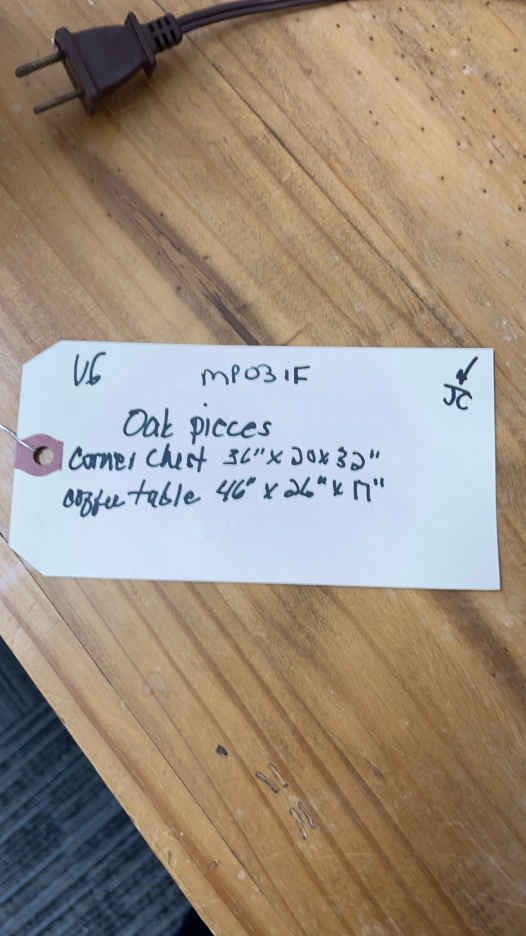 V6 MP031F ✓
JC
Oak pieces
Corner Chest 36" x 20 x 32"
coffee table 46" x 26" x 17"